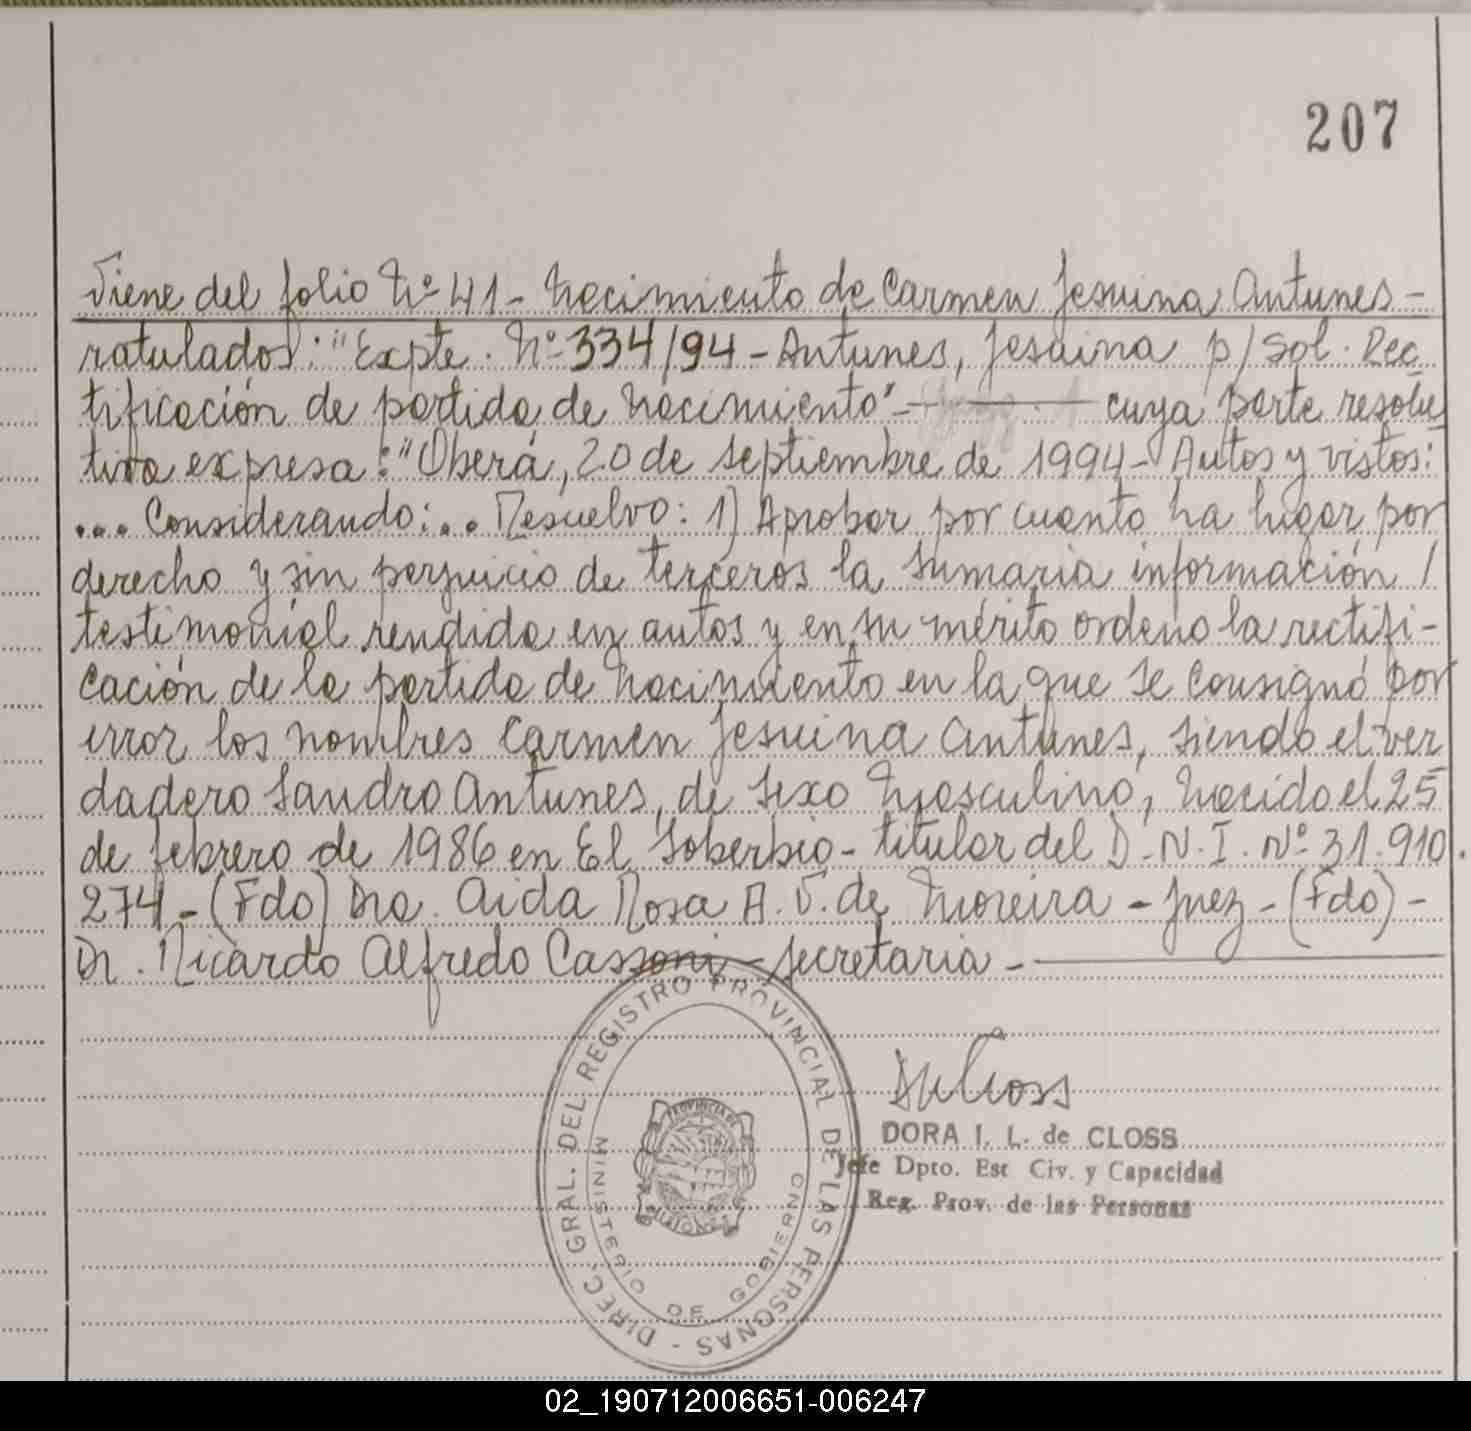 207
Viene del folio Nº 41 - Nacimiento de Carmen Jesuina Antunes -
ratulados: "Expte. Nº 334/94 - Antunes, Jesuina p/ Sol. Rec
tificación de partida de Nacimiento" - cuya parte resolu
tiva expresa: "Oberá, 20 de septiembre de 1994 - Autos y vistos:
... Considerando:... Resuelvo: 1) Aprobar por cuanto ha lugar por
derecho y sin perjuicio de terceros la sumaria información /
testimonial rendida en autos y en su mérito ordeno la rectifi-
cación de la partida de Nacimiento en la que se consignó por
error los nombres Carmen Jesuina Antunes, siendo el ver
dadero Sandro Antunes, de sexo Masculino, Nacido el 25
de febrero de 1986 en El Soberbio - titular del D.N.I. Nº 31.910.
274 - (Fdo) Dra. Aida Rosa A. V. de Moreira - Juez - (Fdo) -
Dr. Ricardo Alfredo Cassoni - Secretaria -
DIREC. GRAL. DEL REGISTRO PROVINCIAL DE LAS PERSONAS -
MINISTERIO DE GOBIERNO
PROVINCIA DE
MISIONES
DORA I. L. de CLOSS
Jefe Dpto. Est Civ. y Capacidad
Reg. Prov. de las Personas
02_190712006651-006247